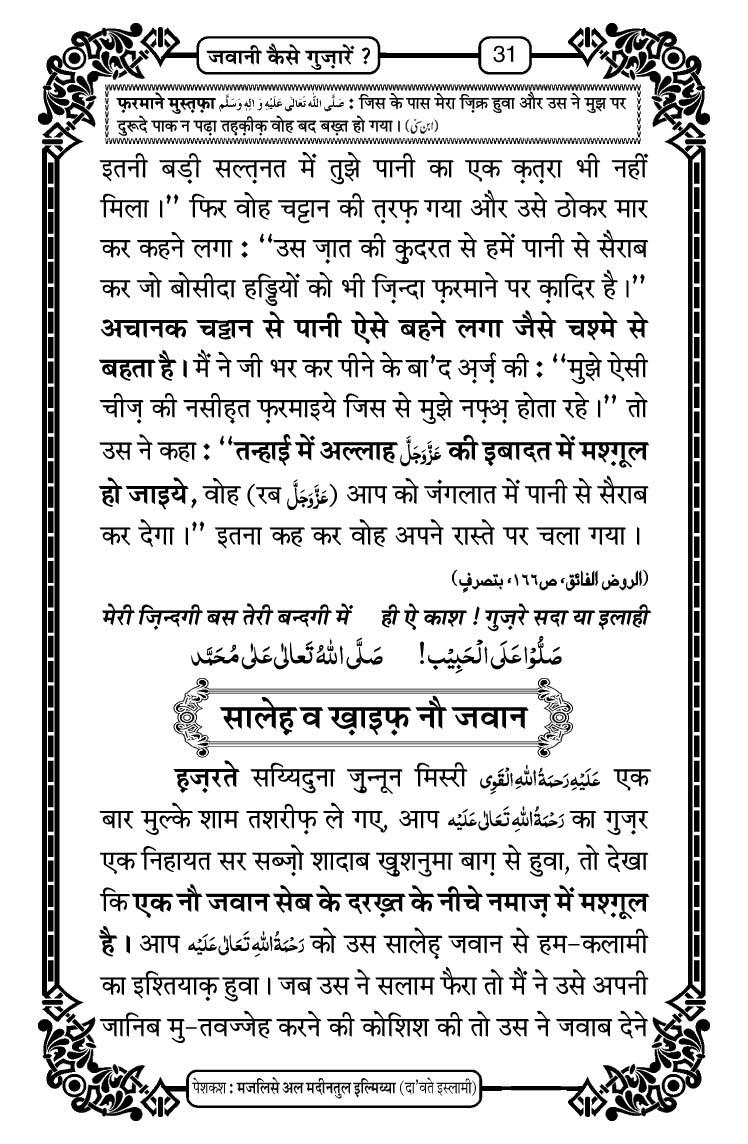 जवानी कैसे गुज़ारें ?
31
फ़रमाने मुस्त़फ़ा صَلَّى اللّٰهُ تَعَالٰى عَلَيْهِ وَاٰلِهٖ وَسَلَّم : जिस के पास मेरा ज़िक्र हुवा और उस ने मुझ पर
दुरूदे पाक न पढ़ा तह़क़ीक़ वोह बद बख़्त हो गया। (ابن سنی)
इतनी बड़ी सल्त़नत में तुझे पानी का एक क़त़रा भी नहीं
मिला।” फिर वोह चट्टान की त़रफ़ गया और उसे ठोकर मार
कर कहने लगा : “उस ज़ात की क़ुदरत से हमें पानी से सैराब
कर जो बोसीदा हड्डियों को भी ज़िन्दा फ़रमाने पर क़ादिर है।”
अचानक चट्टान से पानी ऐसे बहने लगा जैसे चश्मे से
बहता है। मैं ने जी भर कर पीने के बा'द अ़र्ज़ की : “मुझे ऐसी
चीज़ की नसीह़त फ़रमाइये जिस से मुझे नफ़्अ़ होता रहे।” तो
उस ने कहा : “तन्हाई में अल्लाह عَزَّوَجَلَّ की इबादत में मश्ग़ूल
हो जाइये, वोह (रब عَزَّوَجَلَّ) आप को जंगलात में पानी से सैराब
कर देगा।” इतना कह कर वोह अपने रास्ते पर चला गया।
(الروض الفائق، ص١٦٦، بتصرفٍ)
मेरी ज़िन्दगी बस तेरी बन्दगी में ही ऐ काश ! गुज़रे सदा या इलाही
صَلُّوْا عَلَى الْحَبِيْب! صَلَّى اللّٰهُ تَعَالٰى عَلٰى مُحَمَّد
सालेह़ व ख़ाइफ़ नौ जवान
ह़ज़रते सय्यिदुना जुन्नून मिस्री عَلَيْهِ رَحْمَةُ اللّٰهِ الْقَوِى एक
बार मुल्के शाम तशरीफ़ ले गए, आप رَحْمَةُ اللّٰهِ تَعَالٰى عَلَيْه का गुज़र
एक निहायत सर सब्ज़ो शादाब ख़ुशनुमा बाग़ से हुवा, तो देखा
कि एक नौ जवान सेब के दरख़्त के नीचे नमाज़ में मश्ग़ूल
है। आप رَحْمَةُ اللّٰهِ تَعَالٰى عَلَيْه को उस सालेह़ जवान से हम-कलामी
का इश्तियाक़ हुवा। जब उस ने सलाम फैरा तो मैं ने उसे अपनी
जानिब मु-तवज्जेह करने की कोशिश की तो उस ने जवाब देने
पेशकश : मजलिसे अल मदीनतुल इल्मिय्या (दा'वते इस्लामी)